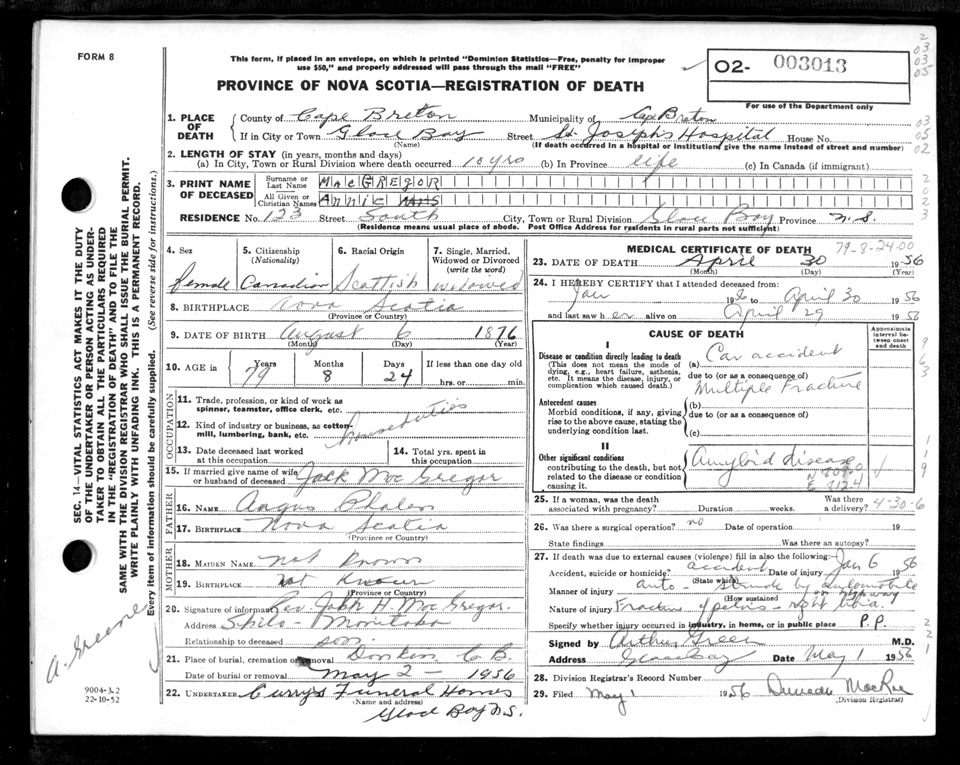 FORM 8
This form, if placed in an envelope, on which is printed "Dominion Statistics—Free, penalty for improper
use $50," and properly addressed will pass through the mail "FREE"
PROVINCE OF NOVA SCOTIA—REGISTRATION OF DEATH
O2- 003013
For use of the Department only
1. PLACE OF DEATH
County of Cape Breton Municipality of Cape Breton
If in City or Town Glace Bay Street St. Joseph's Hospital House No.
(Name) (If death occurred in a hospital or institution give the name instead of street and number)
2. LENGTH OF STAY (in years, months and days)
(a) In City, Town or Rural Division where death occurred 10 yrs (b) In Province life (c) In Canada (if immigrant)
3. PRINT NAME OF DECEASED
Surname or Last Name MACGREGOR
All Given or Christian Names ANNIE MRS
RESIDENCE No. 123 Street South City, Town or Rural Division Glace Bay Province N.S.
(Residence means usual place of abode. Post Office Address for residents in rural parts not sufficient)
4. Sex
female
5. Citizenship
(Nationality)
Canadian
6. Racial Origin
Scottish
7. Single, Married, Widowed or Divorced
(write the word)
widowed
8. BIRTHPLACE Nova Scotia
(Province or Country)
9. DATE OF BIRTH August 6 1876
(Month) (Day) (Year)
10. AGE in
Years 79
Months 8
Days 24
If less than one day old
hrs. or min.
OCCUPATION
11. Trade, profession, or kind of work as
spinner, teamster, office clerk, etc.
12. Kind of industry or business, as cotton-
mill, lumbering, bank, etc.
household duties
13. Date deceased last worked
at this occupation
14. Total yrs. spent in
this occupation
15. If married give name of wife
or husband of deceased Jack MacGregor
FATHER
16. Name Angus Phalen
17. Birthplace Nova Scotia
(Province or Country)
MOTHER
18. MAIDEN NAME not known
19. BIRTHPLACE not known
(Province or Country)
20. Signature of informant Rev. John H. MacGregor.
Address Shilo - Manitoba
Relationship to deceased son
21. Place of burial, cremation or removal Donkin C.B.
Date of burial or removal May 2 - 1956
22. UNDERTAKER Curry's Funeral Homes
(Name and address)
Glace Bay N.S.
MEDICAL CERTIFICATE OF DEATH
79-8-24-00
23. DATE OF DEATH April 30 1956
(Month) (Day) (Year)
24. I HEREBY CERTIFY that I attended deceased from:
Jan 1956 to April 30 1956
and last saw her alive on April 29 1956
CAUSE OF DEATH
Approximate
interval be-
tween onset
and death
I
Disease or condition directly leading to death
(This does not mean the mode of
dying, e.g., heart failure, asthenia,
etc. It means the disease, injury, or
complication which caused death.)
(a) Car accident
due to (or as a consequence of)
Multiple Fracture
Antecedent causes
Morbid conditions, if any, giving
rise to the above cause, stating the
underlying condition last.
(b)
due to (or as a consequence of)
(c)
II
Other significant conditions
contributing to the death, but not
related to the disease or condition
causing it.
Amyloid disease
N 809.0
E 812.4
25. If a woman, was the death
associated with pregnancy? Duration weeks. Was there a delivery? 4-30-6
26. Was there a surgical operation? no Date of operation 19
State findings Was there an autopsy?
27. If death was due to external causes (violence) fill in also the following:
Accident, suicide or homicide? accident Date of injury Jan 6 1956
(State which)
Manner of injury auto - struck by automobile on highway
(How sustained
Nature of injury Fracture of pelvis - right tibia.
Specify whether injury occurred in industry, in home, or in public place P.P.
Signed by Arthur Green M.D.
Address Glace Bay Date May 1 1956
28. Division Registrar's Record Number
29. Filed May 1 1956 Duncan MacRae
(Division Registrar)
SEC. 14—VITAL STATISTICS ACT MAKES IT THE DUTY
OF THE UNDERTAKER OR PERSON ACTING AS UNDER-
TAKER TO OBTAIN ALL THE PARTICULARS REQUIRED
IN THE "REGISTRATION OF DEATH" AND TO FILE THE
SAME WITH THE DIVISION REGISTRAR WHO SHALL ISSUE THE BURIAL PERMIT.
WRITE PLAINLY WITH UNFADING INK. THIS IS A PERMANENT RECORD.
Every item of information should be carefully supplied. (See reverse side for instructions.)
A. Greene
9004-3.2
22-10-52